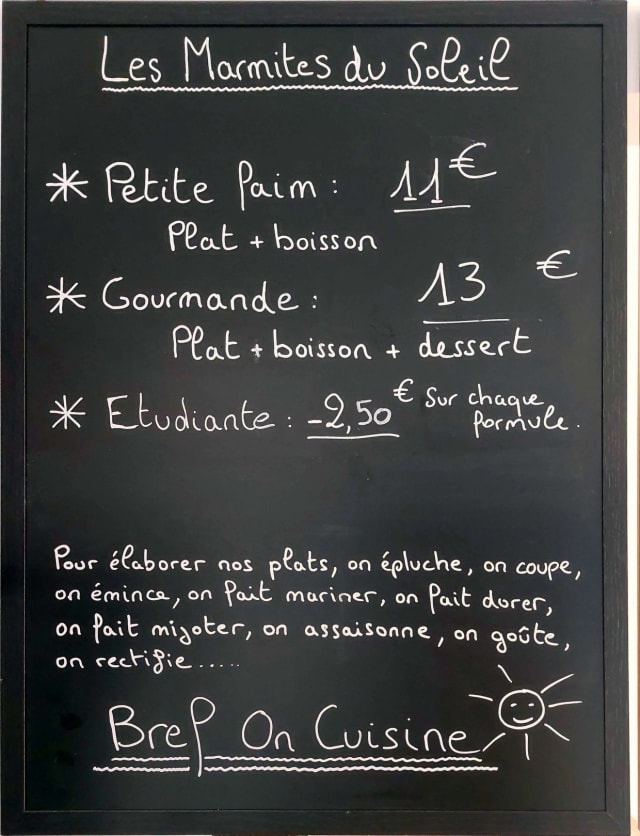 Les Marmites du Soleil
* Petite faim : 11€
Plat + boisson
* Gourmande : 13 €
Plat + boisson + dessert
* Etudiante : -2,50 € sur chaque
formule.
Pour élaborer nos plats, on épluche, on coupe,
on émince, on fait mariner, on fait dorer,
on fait mijoter, on assaisonne, on goûte,
on rectifie.....
Bref On Cuisine